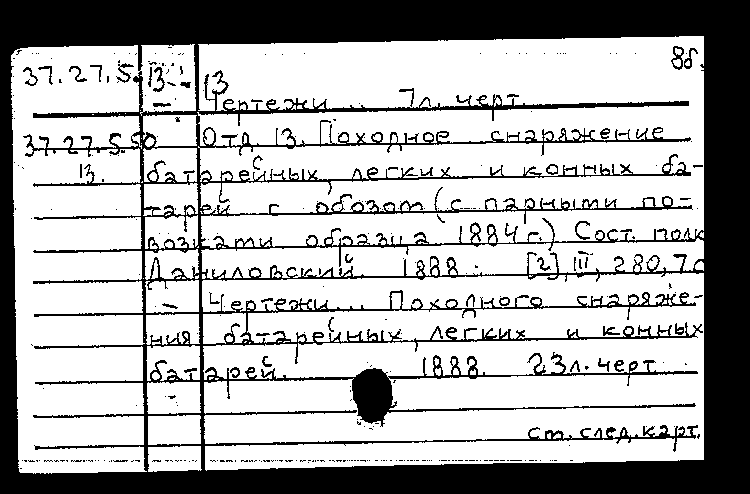 8б.
37.27.5. 13 - 13
— Чертежи... 7л. черт.
37.27.5.50 Отд 13. Походное снаряжение
13. батарейных, легких и конных ба-
тарей с обозом (с парными по-
возками образца 1884г.) Сост. полк
Даниловский. 1888. [2], III, 280, 7с
— Чертежи... Походного снаряже-
ния батарейных, легких и конных
батарей. 1888. 23л. черт
см. след. карт.